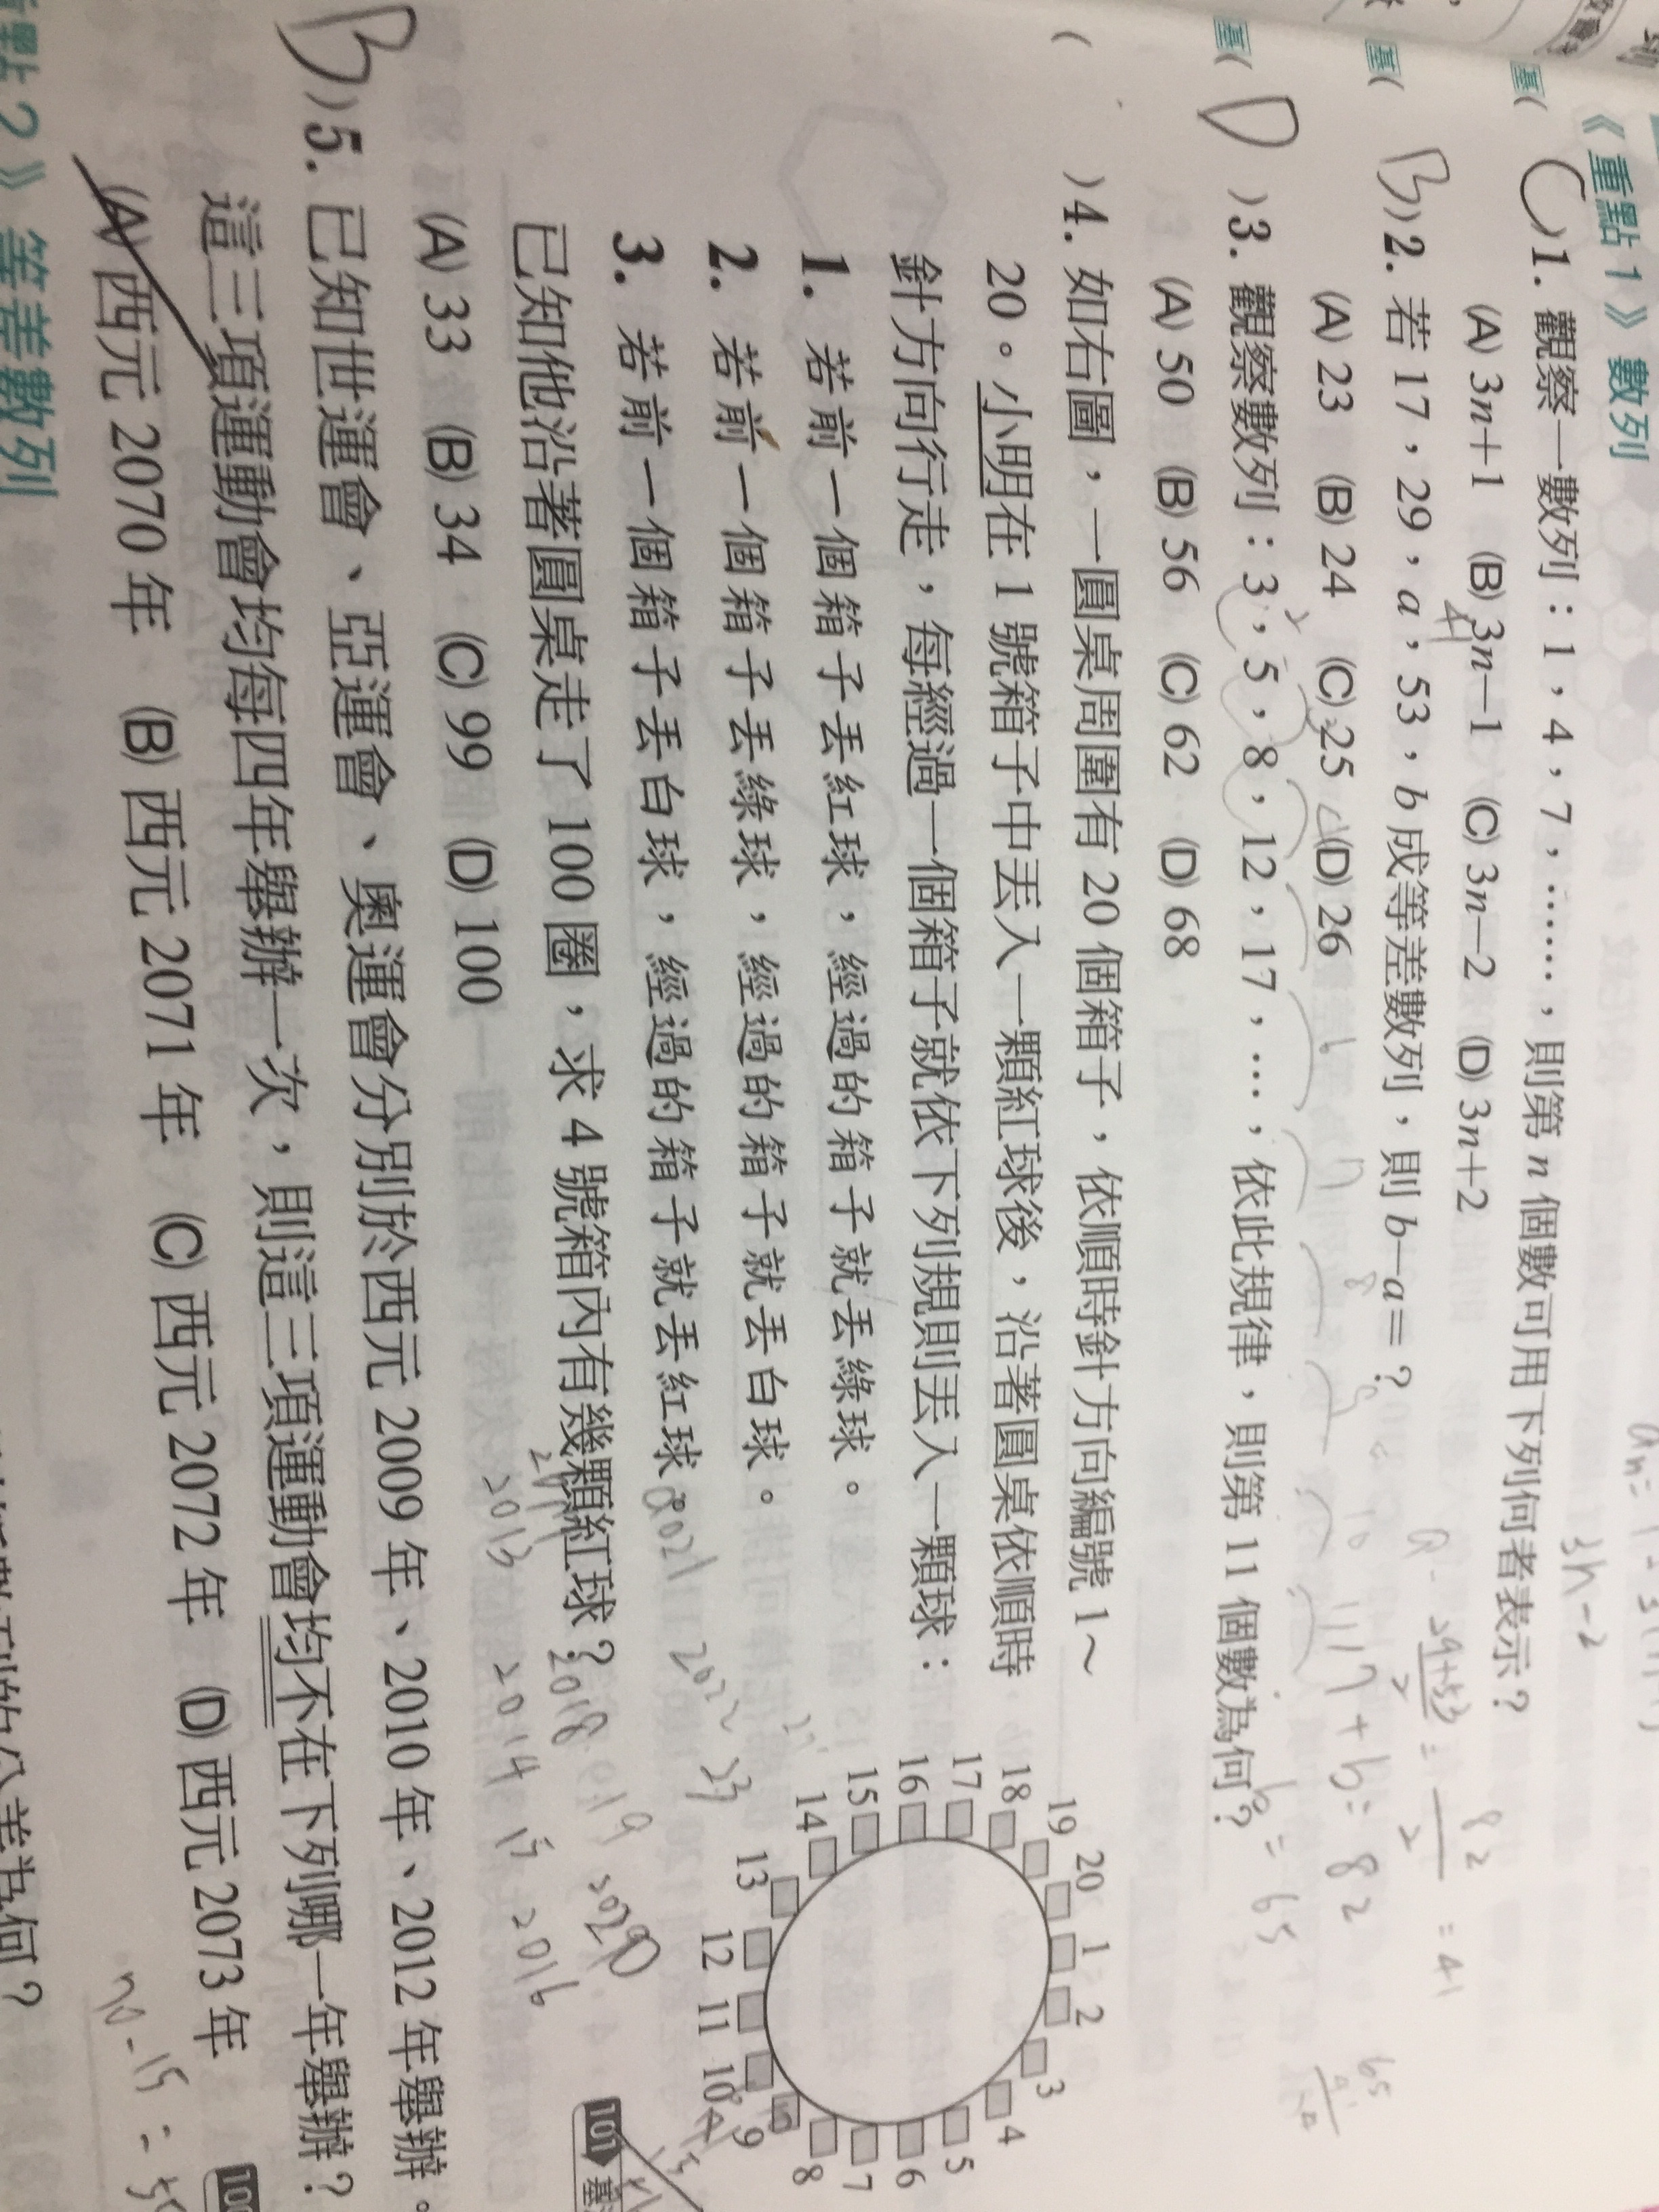 《重點1》數列
基( C )1. 觀察一數列：1，4，7，……，則第 n 個數可用下列何者表示？
(A) 3n+1 (B) 3n−1 (C) 3n−2 (D) 3n+2
3n-2
基( B )2. 若 17，29，a，53，b 成等差數列，則 b−a＝？
41
(A) 23 (B) 24 (C) 25 (D) 26
基( D )3. 觀察數列：3，5，8，12，17，…，依此規律，則第 11 個數為何？
(A) 50 (B) 56 (C) 62 (D) 68
( )4. 如右圖，一圓桌周圍有 20 個箱子，依順時針方向編號 1～
20。小明在 1 號箱子中丟入一顆紅球後，沿著圓桌依順時
針方向行走，每經過一個箱子就依下列規則丟入一顆球：
1. 若前一個箱子丟紅球，經過的箱子就丟綠球。
2. 若前一個箱子丟綠球，經過的箱子就丟白球。
3. 若前一個箱子丟白球，經過的箱子就丟紅球。
已知他沿著圓桌走了 100 圈，求 4 號箱內有幾顆紅球？
(A) 33 (B) 34 (C) 99 (D) 100
1
2
3
4
5
6
7
8
9
10
11
12
13
14
15
16
17
18
19
20
101
2021 2022 23
2018 2019 2020
2013 2014 15 2016
B )5. 已知世運會、亞運會、奧運會分別於西元 2009 年、2010 年、2012 年舉辦。
這三項運動會均每四年舉辦一次，則這三項運動會均不在下列哪一年舉辦？
(A) 西元 2070 年 (B) 西元 2071 年 (C) 西元 2072 年 (D) 西元 2073 年
2》等差數列